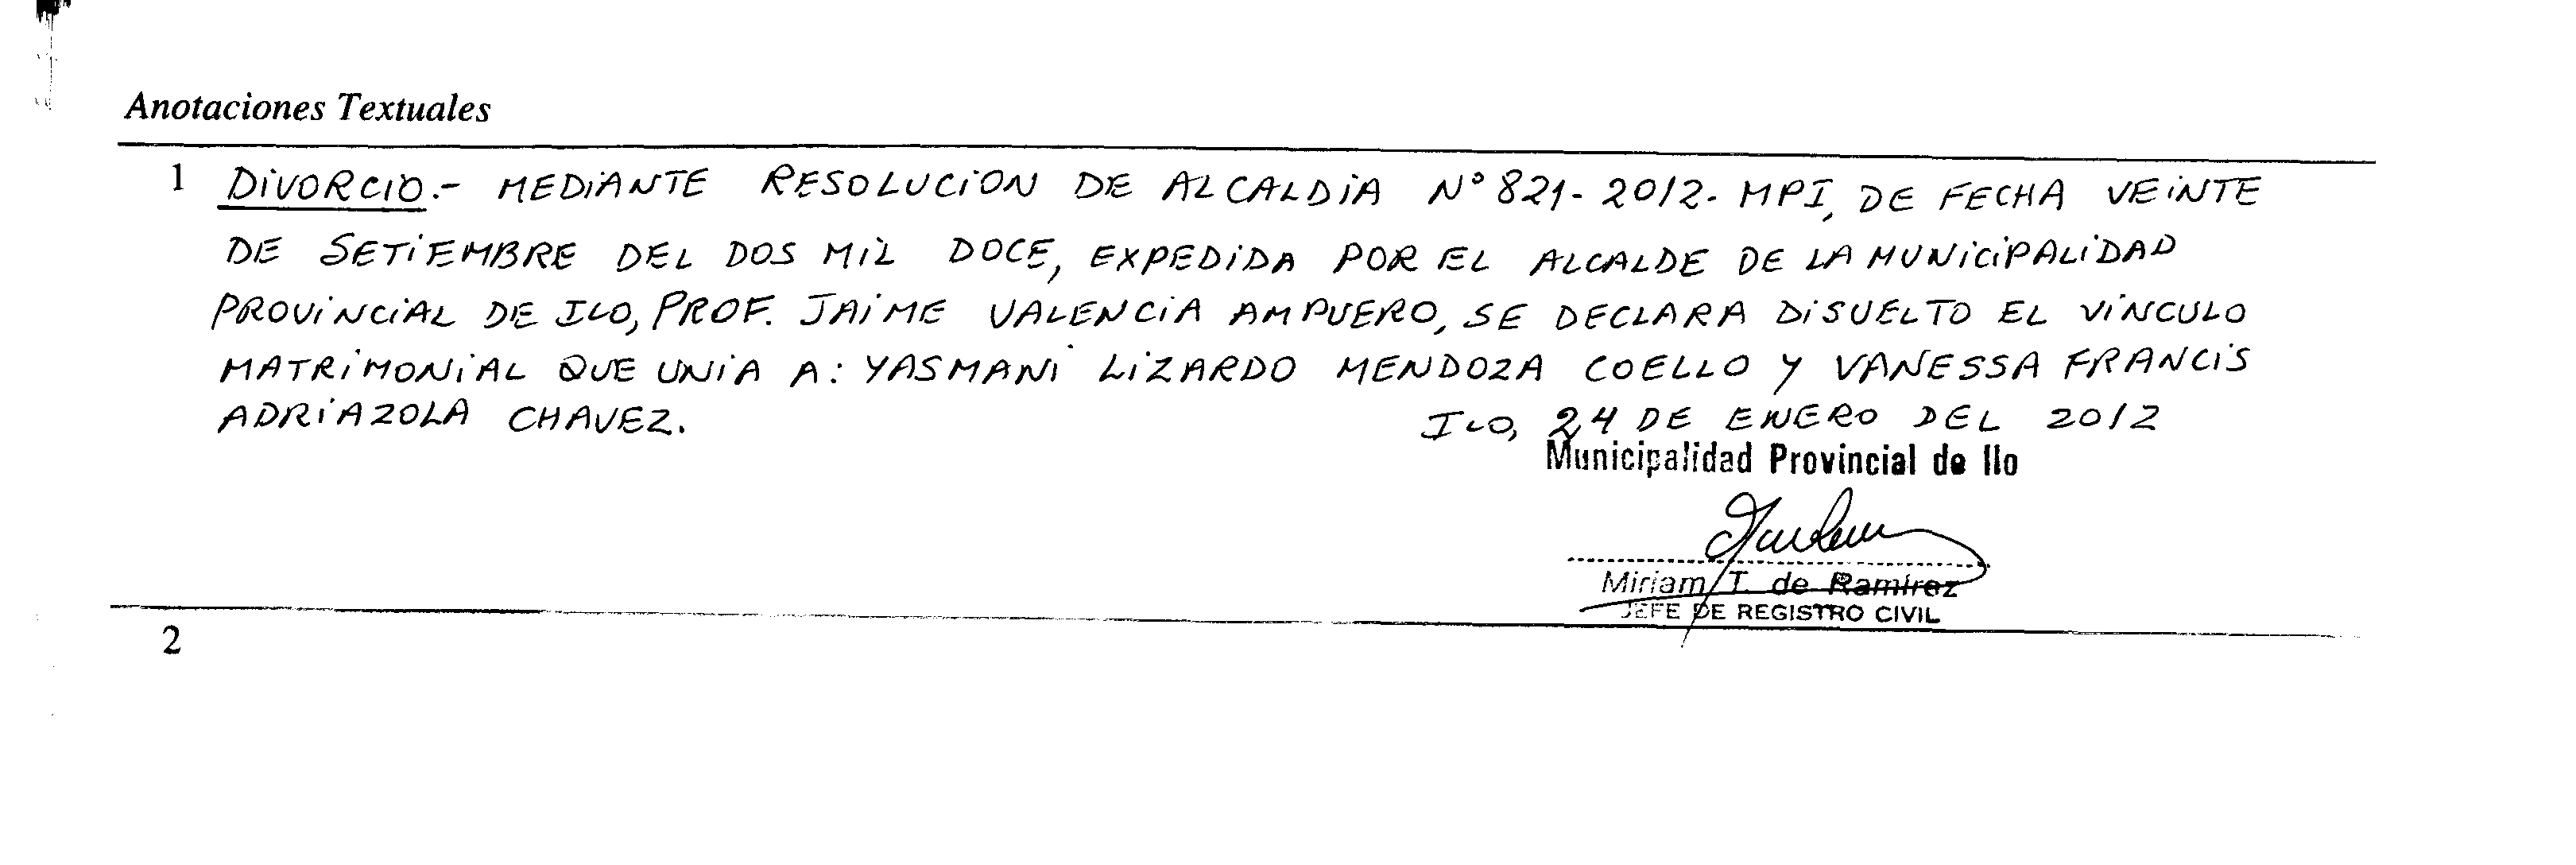 Anotaciones Textuales
1 DIVORCIO.- MEDIANTE RESOLUCION DE ALCALDIA N° 821-2012-MPI, DE FECHA VEINTE
DE SETIEMBRE DEL DOS MIL DOCE, EXPEDIDA POR EL ALCALDE DE LA MUNICIPALIDAD
PROVINCIAL DE ILO, PROF. JAIME VALENCIA AMPUERO, SE DECLARA DISUELTO EL VINCULO
MATRIMONIAL QUE UNIA A: YASMANI LIZARDO MENDOZA COELLO Y VANESSA FRANCIS
ADRIAZOLA CHAVEZ. ILO, 24 DE ENERO DEL 2012
Municipalidad Provincial de Ilo
Miriam T. de Ramírez
JEFE DE REGISTRO CIVIL
2